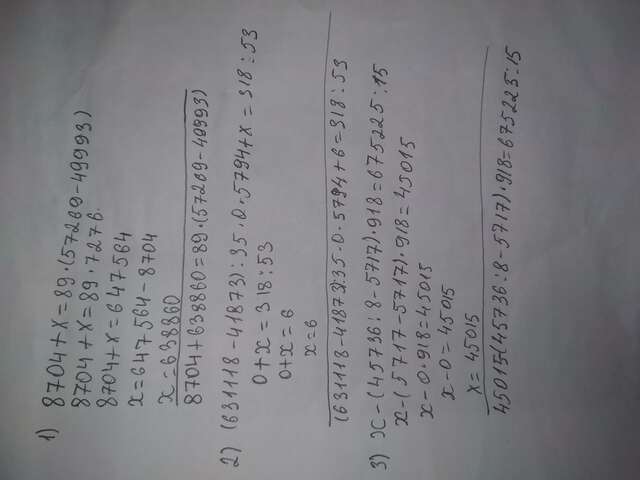 1) 8704+x=89·(57269-49993)
8704+x=89·7276.
8704+x=647564
x=647564-8704
x=638860
8704+638860=89·(57269-49993)
2) (631118-41873):35·0·5794+x=318:53
0+x=318:53
0+x=6
x=6
(631118-41873):35·0·5794+6=318:53
3) x-(45736:8-5717)·918=675225:15
x-(5717-5717)·918=45015
x-0·918=45015
x-0=45015
x=45015
45015(45736:8-5717)·918=675225:15